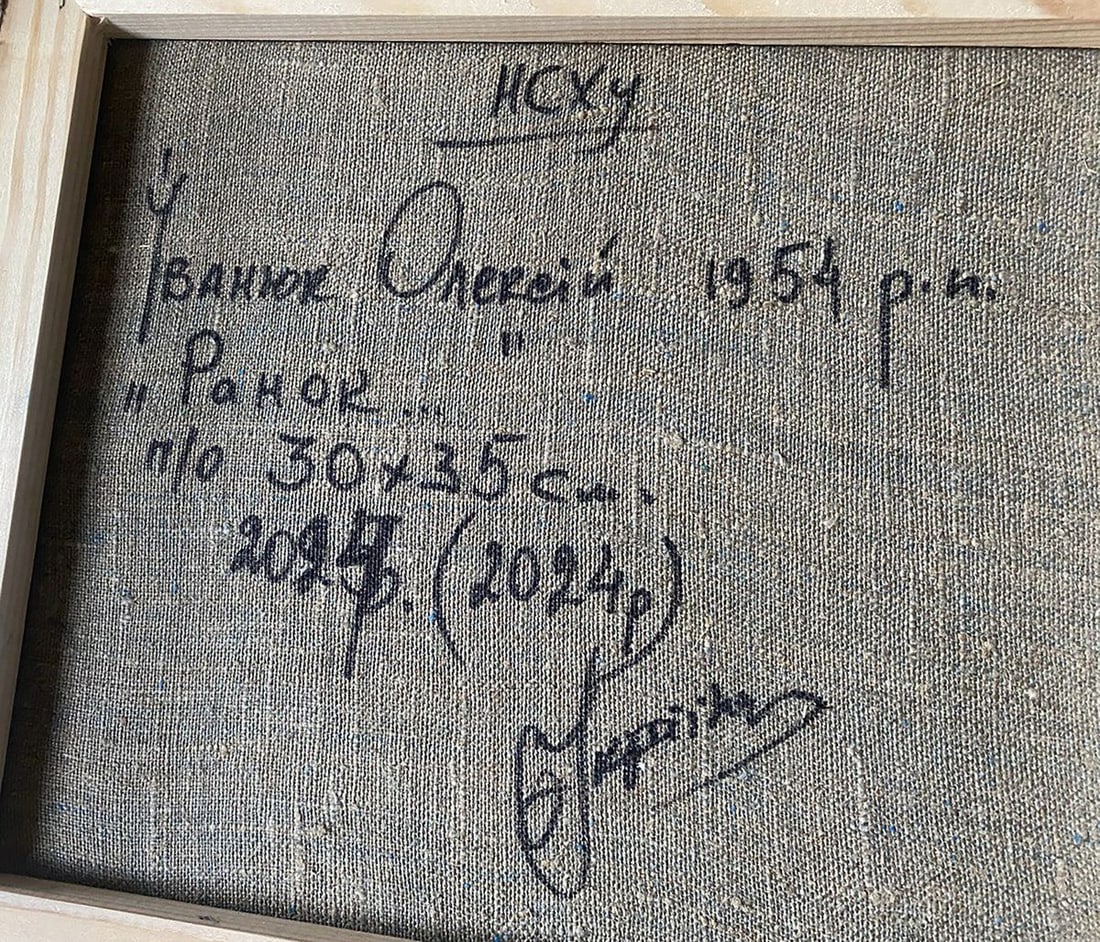 НСХУ
Іванюк Олексій 1954 р.н.
"Ранок..."
п/о 30х35 см.
(2024р)